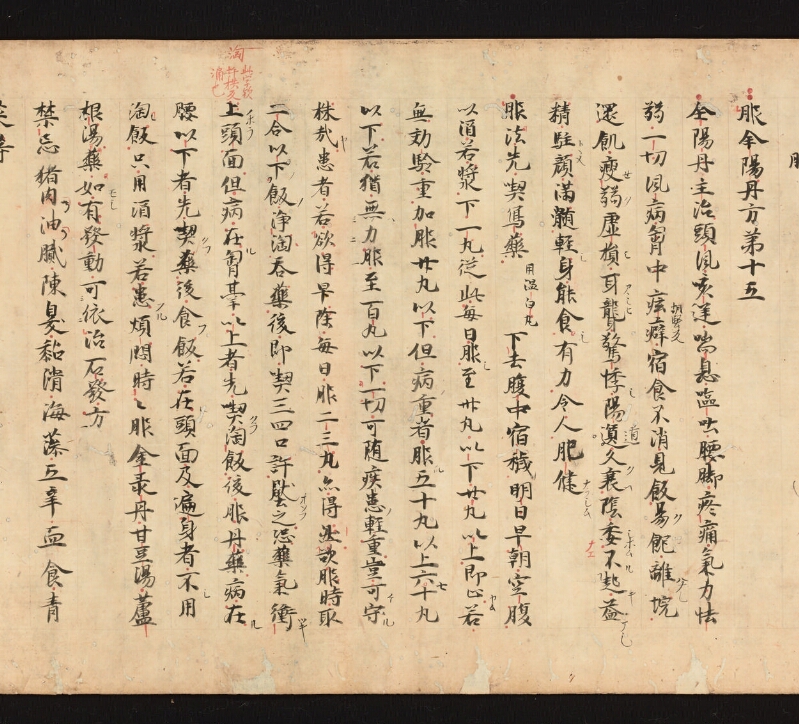 服全陽丹方第十五
全陽丹主治頭風咳逆喘息嘔吐腰脚疼痛氣力怯
弱一切風病胷中痃癖宿食不消見飯易飽離垸
還飢瘦弱虛損耳聾驚悸陽道久衰陰委不起益
精駐顏滿髓輕身能食有力令人肥健
服法先喫瀉藥 用温白丸 下去腹中宿穢明日早朝空腹
以酒若漿下一丸從此每日服至廿丸以下廿丸以上即止若
無効驗重加服廿丸以下但病重者服五十丸以上六十丸
以下若猶無力服至百丸以下一切可随疾患輕重豈可守
株哉患者若欲得早除每日服二三丸亦得欲服時取
二合以下飯淨淘吞藥後即喫三四口許壓之恐藥氣衝
上頭面但病在胷以上者先喫淘飯後服丹藥病在
腰以下者先喫藥後食飯若在頭面及遍身者不用
淘飯只用酒漿若患煩悶時々服金液丹甘豆湯蘆
根湯藥如有發動可依治石發方
禁忌 猪肉油膩陳臭黏滑海藻五辛血食青